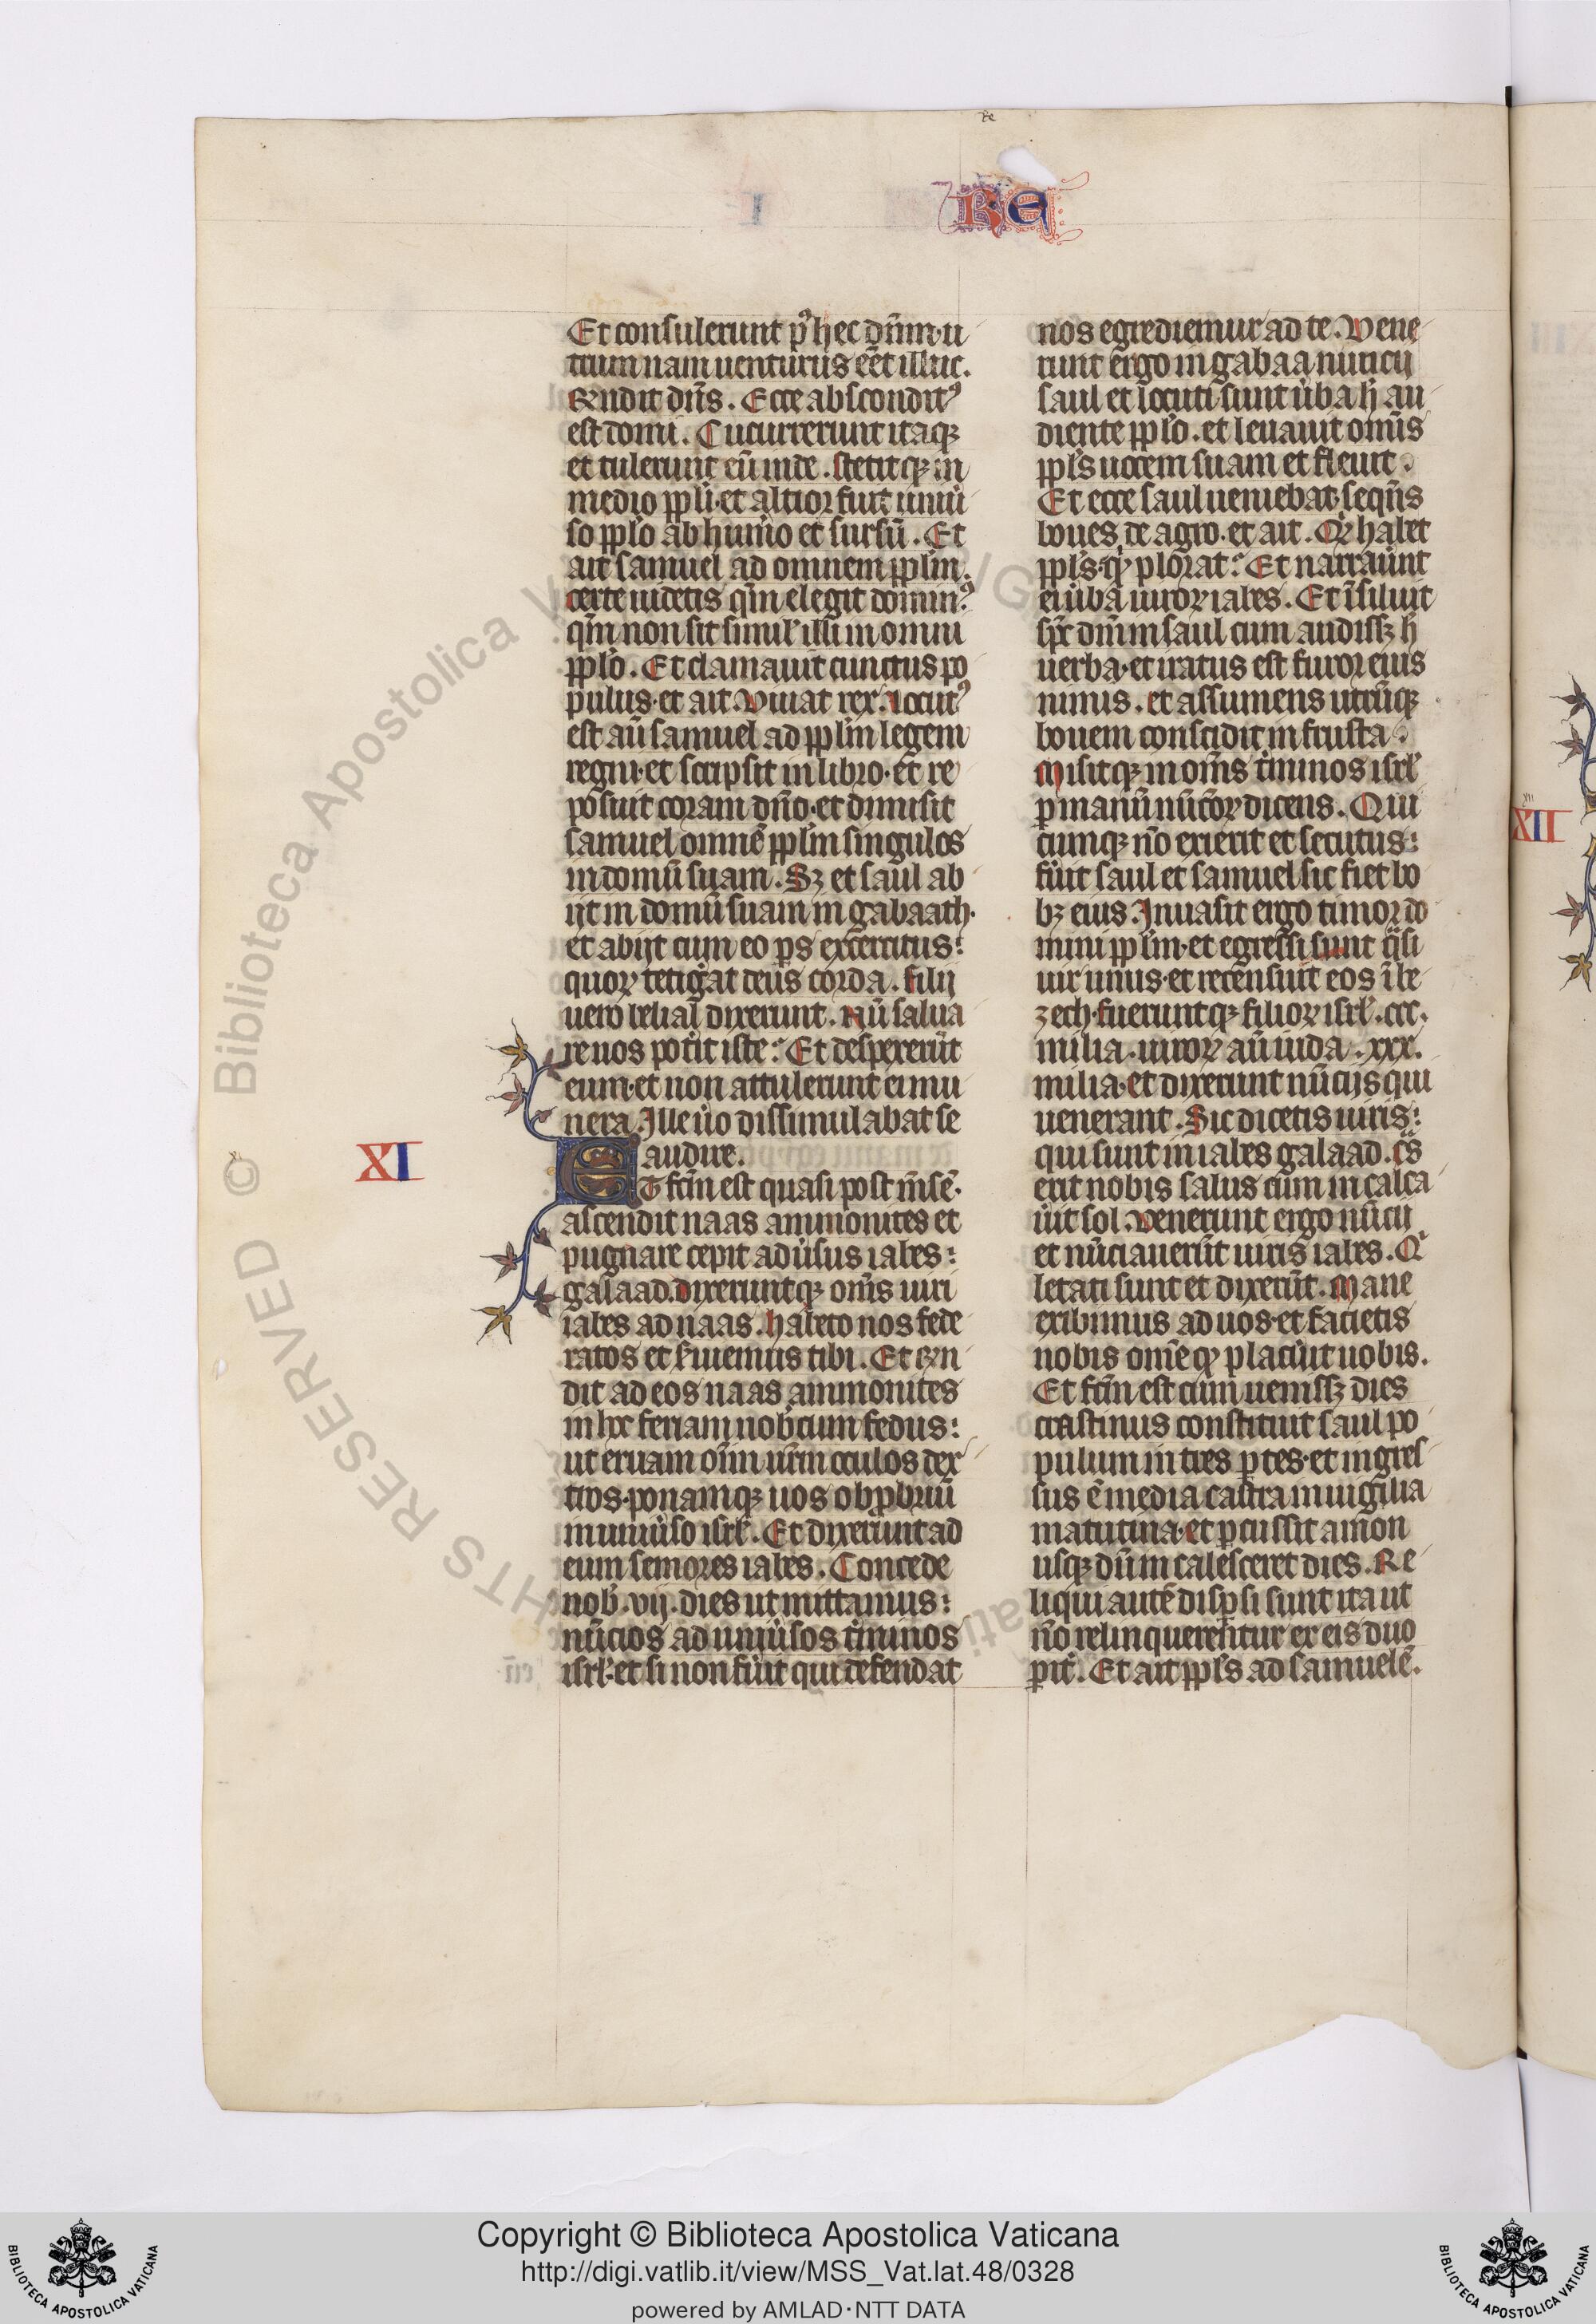 RE
Et consulerunt p⁹ hec dn̄m. u
trum nam uenturus eēt illuc.
Rn̄dit dn̄s. Ecce abscondit⁹
est domi. Cucurrerunt itaqꝫ
et tulerunt eū inde. stetitqꝫ in
medio ppl̓i. et altior fuit uniu̓
so ppl̓o ab hum̓o et sursū. Et
ait samuel ad omnem ppl̓m.
certe uidetis qm̄ elegit domin⁹
qm̄ non sit simil̓ illi in omni
ppl̓o. Et clamauit cunctus po
pulus. et ait. Viuat rex. Locut⁹
est aū samuel ad ppl̓m legem
regni. et scripsit in libro. et re
posuit coram dn̄o. et dimisit
samuel omnē ppl̓m singulos
in domū suam. Sꝫ et saul ab
ijt in domū suam in gabaath.
et abijt cum eo ps exercitus:
quoꝝ tetig̓at deus corda. Filij
uero belial dixerunt. Nū salua
re nos pot̓it iste? Et despexerūt
eum. et non attulerunt ei mu
nera. Ille u̓o dissimulabat se
audire.
XI
Et fcm̄ est quasi post m̄sē.
ascendit naas ammonites et
pugnare cepit adu̓sus iabes:
galaad. dixeruntqꝫ om̄s uiri
iabes ad naas. habeto nos fede
ratos et s̓uiemus tibi. Et rn̄
dit ad eos naas ammonites
in hoc feriam nob̓cum fedus:
ut eruam oīm ur̄m oculos dex
tros. ponamqꝫ uos obꝓbriū
in uniu̓so isrl̓. Et dixerunt ad
eum seniores iabes. Concede
nob̓. vij. dies ut mittamus:
nūcios ad uniu̓sos t̓minos
isrl̓. et si non fu̓it qui defendat
nos egrediemur ad te. Vene
runt ergo in gabaa nuncij
saul et locuti sunt u̓ba h̓ au
diente ppl̓o. et leuauit om̄is
ppl̓s uocem suam et fleuit.
Et ecce saul ueniebat seqn̄s
boues de agro. et ait. Qd̓ habet
ppl̓s. qꝫ plorat? Et narrau̓unt
ei u̓ba uiroꝝ iabes. Et īsiluit
sp̄c dn̄i in saul cum audissꝫ h̓
uerba. et iratus est furor eius
nimis. et assumens utrūqꝫ
bouem conscidit in frusta.
Misitqꝫ in om̄s t̓minos isrl̓
ꝑ manū nūcioꝝ dicens. Qui
cumqꝫ nō exierit et secutus:
fu̓it saul et samuel sic fiet bo
bꝫ eius. Inuasit ergo timor do
mini ppl̓m. et egressi sunt q̓si
uir unus. et recensuit eos ī be
zech. fueruntqꝫ filioꝝ isrl̓. ccc.
milia. uiroꝝ aū iuda. xxx.
milia. et dixerunt nūcijs qui
uenerant. Sic dicetis uiris:
qui sunt in iabes galaad. c̓s
erit nobis salus cum incalca
u̓it sol. Venerunt ergo nūcij
et nūciauerūt uiris iabes. Q̓
letati sunt et dixerūt. Mane
exibimus ad uos. et facietis
nobis om̄e qꝫ placu̓it uobis.
Et fcm̄ est cum uenissꝫ dies
crastinus constituit saul po
pulum in tres ꝑtes. et ingres
sus ē media castra in uigilia
matutina. et ꝑcussit amon
usqꝫ dū incalesceret dies. Re
liqui autē disꝑsi sunt ita ut
nō relinquerentur ex eis duo
ꝑit̓. Et ait ppl̓s ad samuelē.
XII
Copyright © Biblioteca Apostolica Vaticana
http://digi.vatlib.it/view/MSS_Vat.lat.48/0328
powered by AMLAD·NTT DATA
BIBLIOTECA APOSTOLICA VATICANA
BIBLIOTECA APOSTOLICA VATICANA